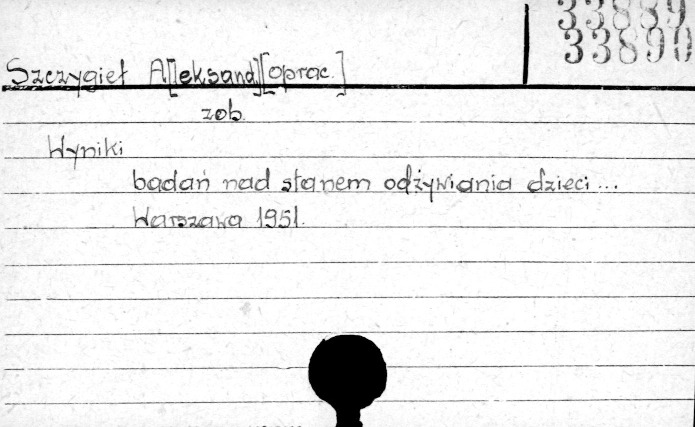 33889
33890
Szczygieł A[leksand][oprac.]
zob.
Wyniki
badań nad stanem odżywiania dzieci...
Warszawa 1951.